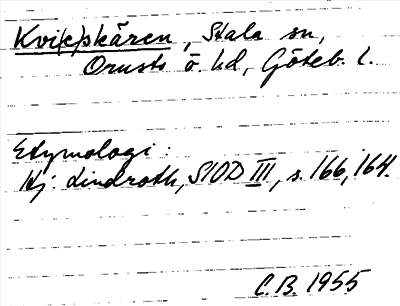 Kvi(k)skären, Stala sn,
Orusts ö. hd, Göteb. l.
Etymologi:
Hj. Lindroth, SIOD III, s. 166, 164.
C.B. 1955